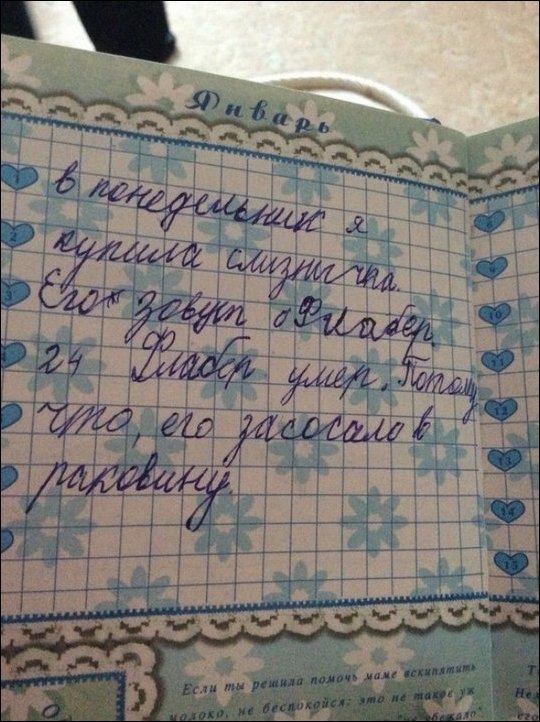 Январь
1
в понедельник я
2
купила слизнячка.
3
Его зовут Флабер.
4
24 Флабер умер. Потому
что, его засосало в
раковину.
8
9
10
11
12
13
14
15
Если ты решила помочь маме вскипятить
молоко, не беспокойся: это не такое уж